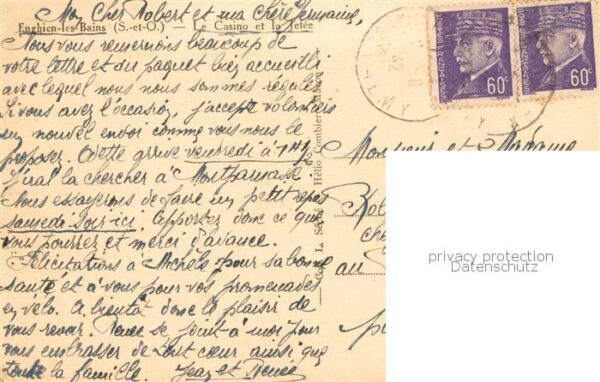 Mon Cher Robert et ma Chère Germaine,
Enghien-les-Bains (S.-et-O.) — Le Casino et la Jetée
Nous vous remercions beaucoup de
votre lettre et du paquet bien accueilli
avec lequel nous nous sommes régalés
Si vous avez l'occasion, j'accepte volontiers
un nouvel envoi comme vous nous le
proposez. Odette arrive vendredi à 7h 1/2
J'irai la chercher à Montparnasse.
Nous essayerons de faire un petit repas
samedi soir ici. Apportez donc ce que
vous pourrez et merci d'avance.
Félicitations à Michèle pour sa bonne
santé et à vous pour vos promenades
en vélo. A bientôt donc le plaisir de
vous revoir. Renée se joint à moi pour
vous embrasser de tout cœur ainsi que
toute la famille. Jean et Renée
Hélio Combier Macon
60c
60c
Monsieur et Madame
au
privacy protection
Datenschutz